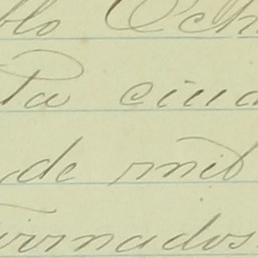 blo Och
ta ciud
de mil
irmados.